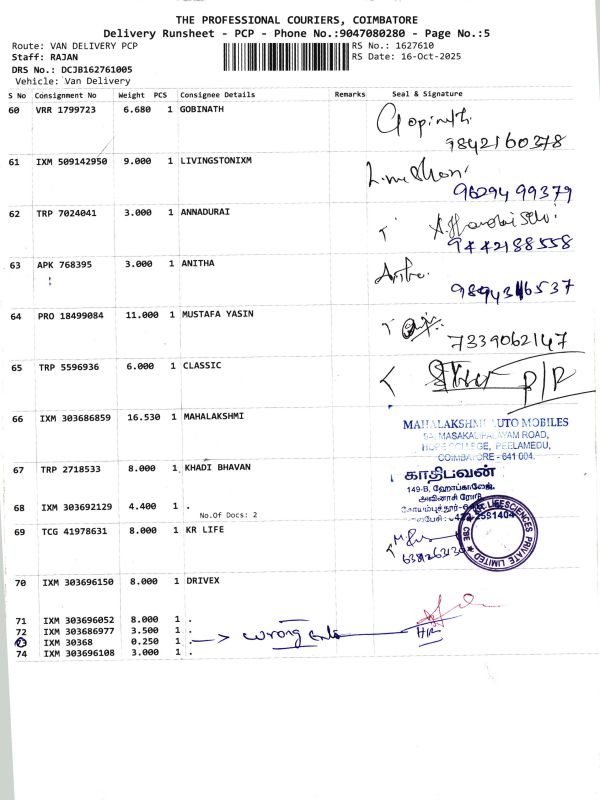 THE PROFESSIONAL COURIERS, COIMBATORE
Delivery Runsheet - PCP - Phone No.:9047080280 - Page No.:5
Route: VAN DELIVERY PCP
Staff: RAJAN
DRS No.: DCJB162761005
Vehicle: Van Delivery
RS No.: 1627610
RS Date: 16-Oct-2025
S No Consignment No Weight PCS Consignee Details Remarks Seal & Signature
60 VRR 1799723 6.680 1 GOBINATH
Gopinath.
9842160378
61 IXM 509142950 9.000 1 LIVINGSTONIXM
9629499379
62 TRP 7024041 3.000 1 ANNADURAI
9442188558
63 APK 768395 3.000 1 ANITHA
64 PRO 18499084 11.000 1 MUSTAFA YASIN
7339062147
65 TRP 5596936 6.000 1 CLASSIC
66 IXM 303686859 16.530 1 MAHALAKSHMI
MAHALAKSHMI AUTO MOBILES
MASAKALIPALAYAM ROAD,
HOPE COLLEGE, PEELAMEDU,
COIMBATORE - 641 004.
67 TRP 2718533 8.000 1 KHADI BHAVAN
காதிபவன்
149-B, ஹோப்காலேஜ்,
அவினாசி ரோடு
68 IXM 303692129 4.400 1 .
No.Of Docs: 2
69 TCG 41978631 8.000 1 KR LIFE
LIFESCIENCES PRIVATE LIMITED
CBE
70 IXM 303696150 8.000 1 DRIVEX
71 IXM 303696052 8.000 1 .
72 IXM 303686977 3.500 1 .
73 IXM 30368 0.250 1 . wrong
74 IXM 303696108 3.000 1 .